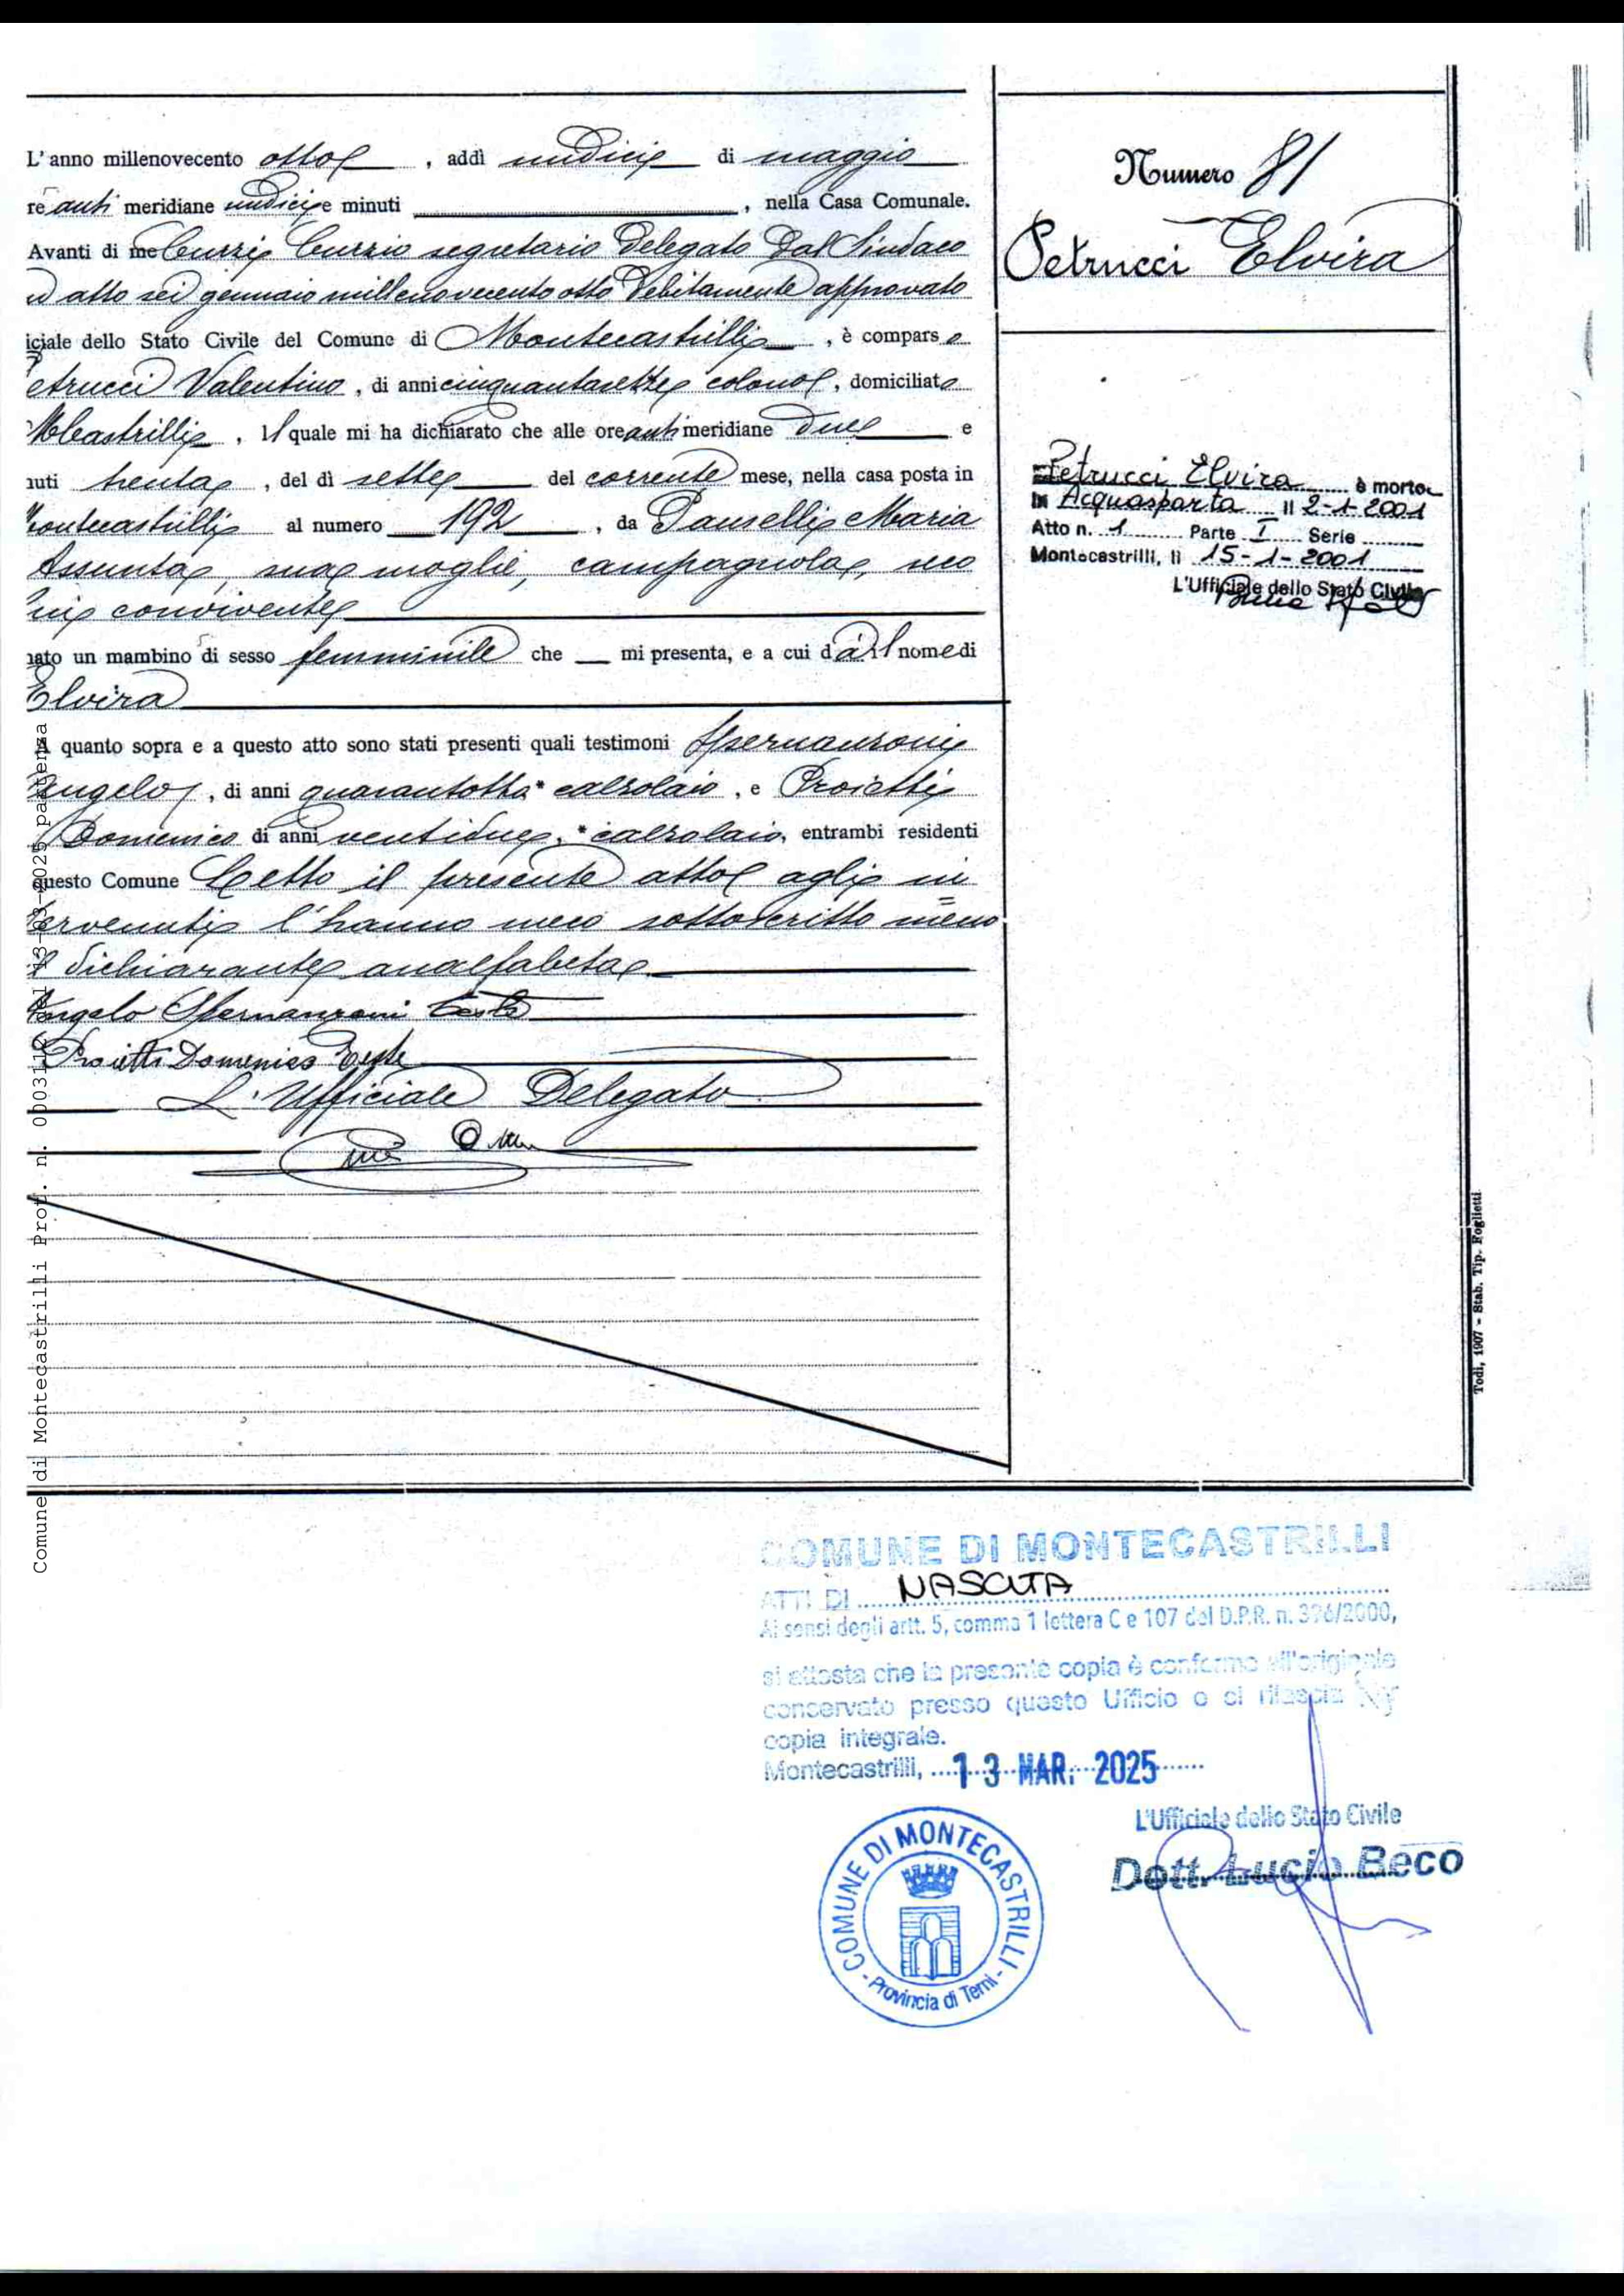 L'anno millenovecento otto, addì undici di maggio
re anti meridiane undici e minuti, nella Casa Comunale.
Avanti di me Curzi Curzio segretario Delegato Dal Sindaco
atto sei gennaio millenovecento otto Debitamente approvato
iciale dello Stato Civile del Comune di Montecastrilli, è comparso
etrucci Valentino, di anni cinquantasette colono, domiciliato
Mcastrilli, il quale mi ha dichiarato che alle ore anti meridiane due e
nuti trenta, del dì sette del corrente mese, nella casa posta in
ontecastrilli al numero 192, da Pauselli Maria
Assunta, sua moglie, campagnola, seco
lui convivente
nato un mambino di sesso femminile che — mi presenta, e a cui dà il nome di
Elvira
A quanto sopra e a questo atto sono stati presenti quali testimoni Spernanzoni
Angelo, di anni quarantotto * calzolaio, e Proietti
Domenico di anni ventidue, * calzolaio, entrambi residenti
questo Comune Letto il presente atto agli in
tervenuti l'hanno meco sottoscritto meno
il dichiarante analfabeta
Angelo Spernanzoni teste
Proietti Domenico teste
L'Ufficiale Delegato
Numero 81
Petrucci Elvira
Petrucci Elvira è morto
in Acquasparta il 2-1-2001
Atto n. 1 Parte I Serie
Montecastrilli, li 15-1-2001
L'Ufficiale dello Stato Civile
Todi, 1907 - Stab. Tip. Foglietti
Comune di Montecastrilli Prot. n. 0003110 13-03-2025 partenza
COMUNE DI MONTECASTRILLI
ATTI DI NASCITA
Ai sensi degli artt. 5, comma 1 lettera C e 107 del D.P.R. n. 396/2000,
si attesta che la presente copia è conforme all'originale
conservato presso questo Ufficio e si rilascia
copia integrale.
Montecastrilli, 13 MAR. 2025
L'Ufficiale dello Stato Civile
Dott. Lucio Beco
COMUNE DI MONTECASTRILLI
- Provincia di Terni -